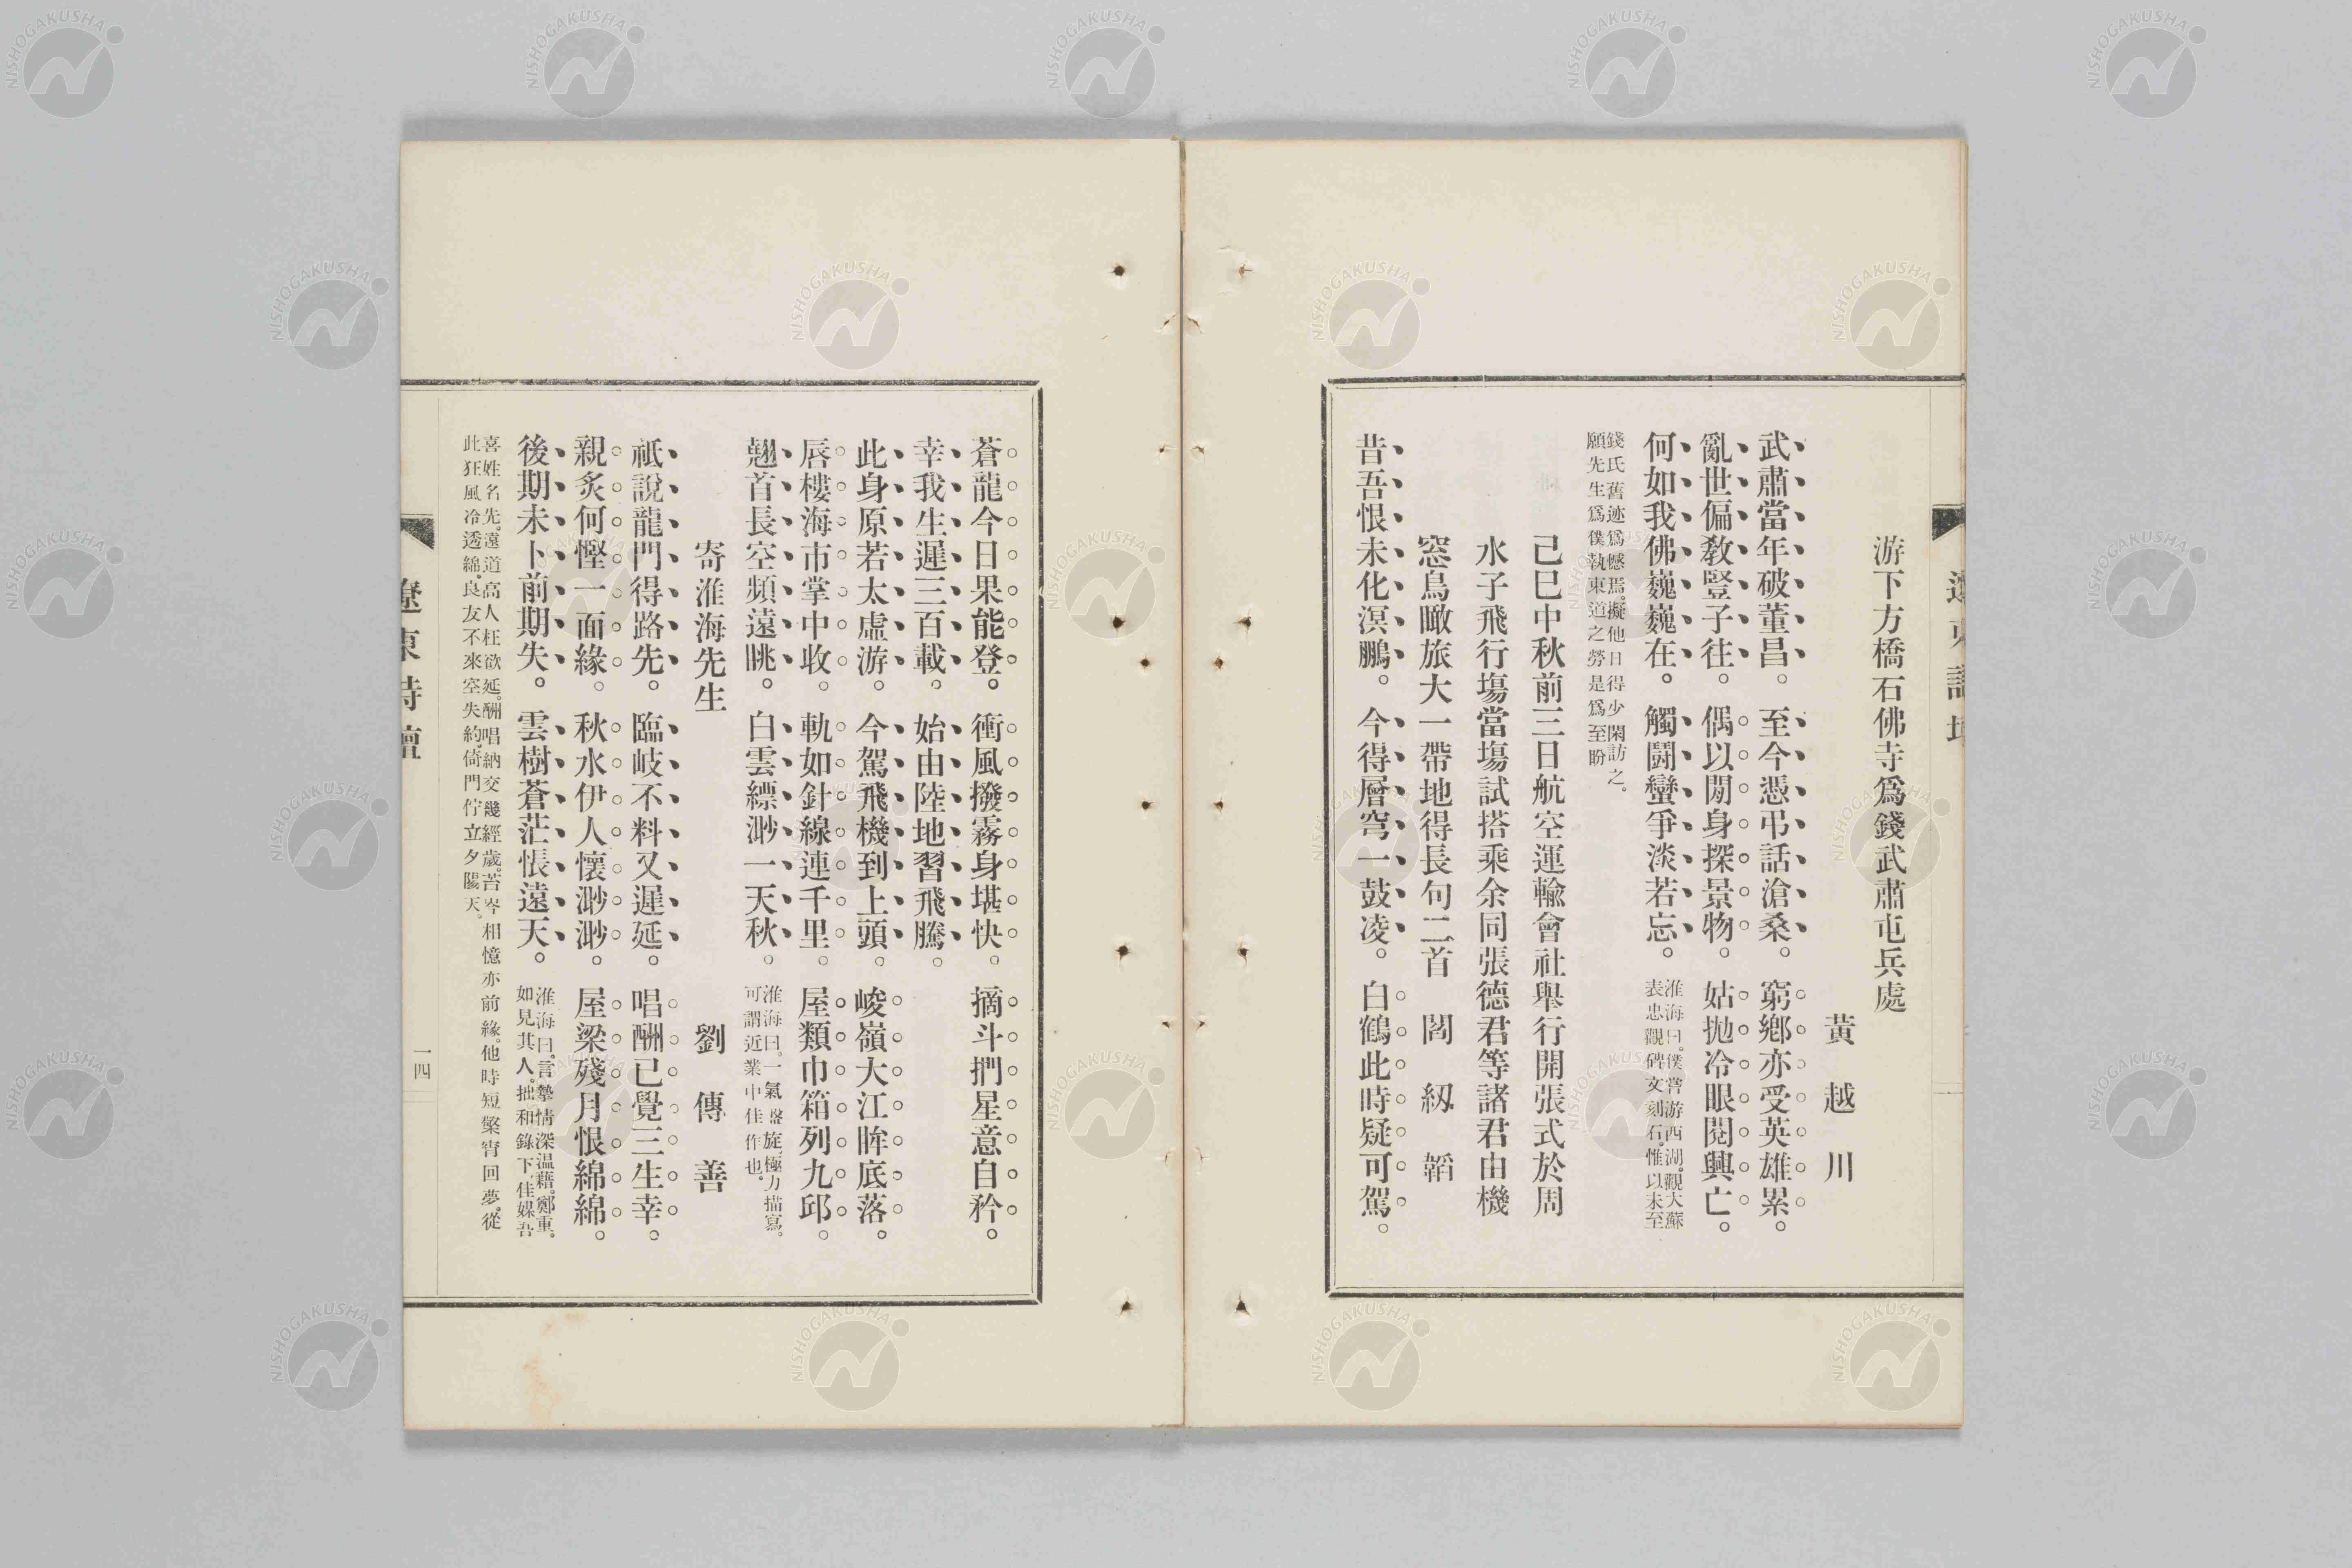 游下方橋石佛寺爲錢武肅屯兵處
黃越川
武肅當年破董昌。至今憑弔話滄桑。窮鄉亦受英雄累。
亂世偏教豎子往。偶以閒身探景物。姑抛冷眼閱興亡。
何如我佛巍巍在。觸鬪蠻爭淡若忘。
淮海曰。僕嘗游西湖。觀大蘇
表忠觀碑文刻石。惟以未至
錢氏舊迹爲憾焉。擬他日得少閑訪之。
願先生爲僕執東道之勞是爲至盼
己巳中秋前三日航空運輸會社舉行開張式於周
水子飛行塲當塲試搭乘余同張德君等諸君由機
窓鳥瞰旅大一帶地得長句二首 閻紉韜
昔吾恨未化溟鵬。今得層穹一鼓凌。白鶴此時疑可駕。
蒼龍今日果能登。衝風撥霧身堪快。摘斗捫星意自矜。
幸我生遲三百載。始由陸地習飛騰。
此身原若太虛游。今駕飛機到上頭。峻嶺大江眸底落。
唇樓海市掌中收。軌如針線連千里。屋類巾箱列九邱。
翹首長空頻遠眺。白雲縹渺一天秋。
淮海曰。一氣盤旋。極力描寫。
可謂近業中佳作也。
寄淮海先生 劉傳善
祗說龍門得路先。臨岐不料又遲延。唱酬已覺三生幸。
親炙何慳一面緣。秋水伊人懷渺渺。屋梁殘月恨綿綿。
後期未卜前期失。雲樹蒼茫悵遠天。
淮海曰。言摯情深。温藉鄭重。
如見其人。拙和錄下。佳媒吾
喜姓名先。遠道高人枉欲延。酬唱納交幾經歲。苔岑相憶亦前緣。他時短檠宵回夢。從
此狂風冷透綿。良友不來空失約。倚門佇立夕陽天。
遼東詩壇
一四
NISHOGAKUSHA